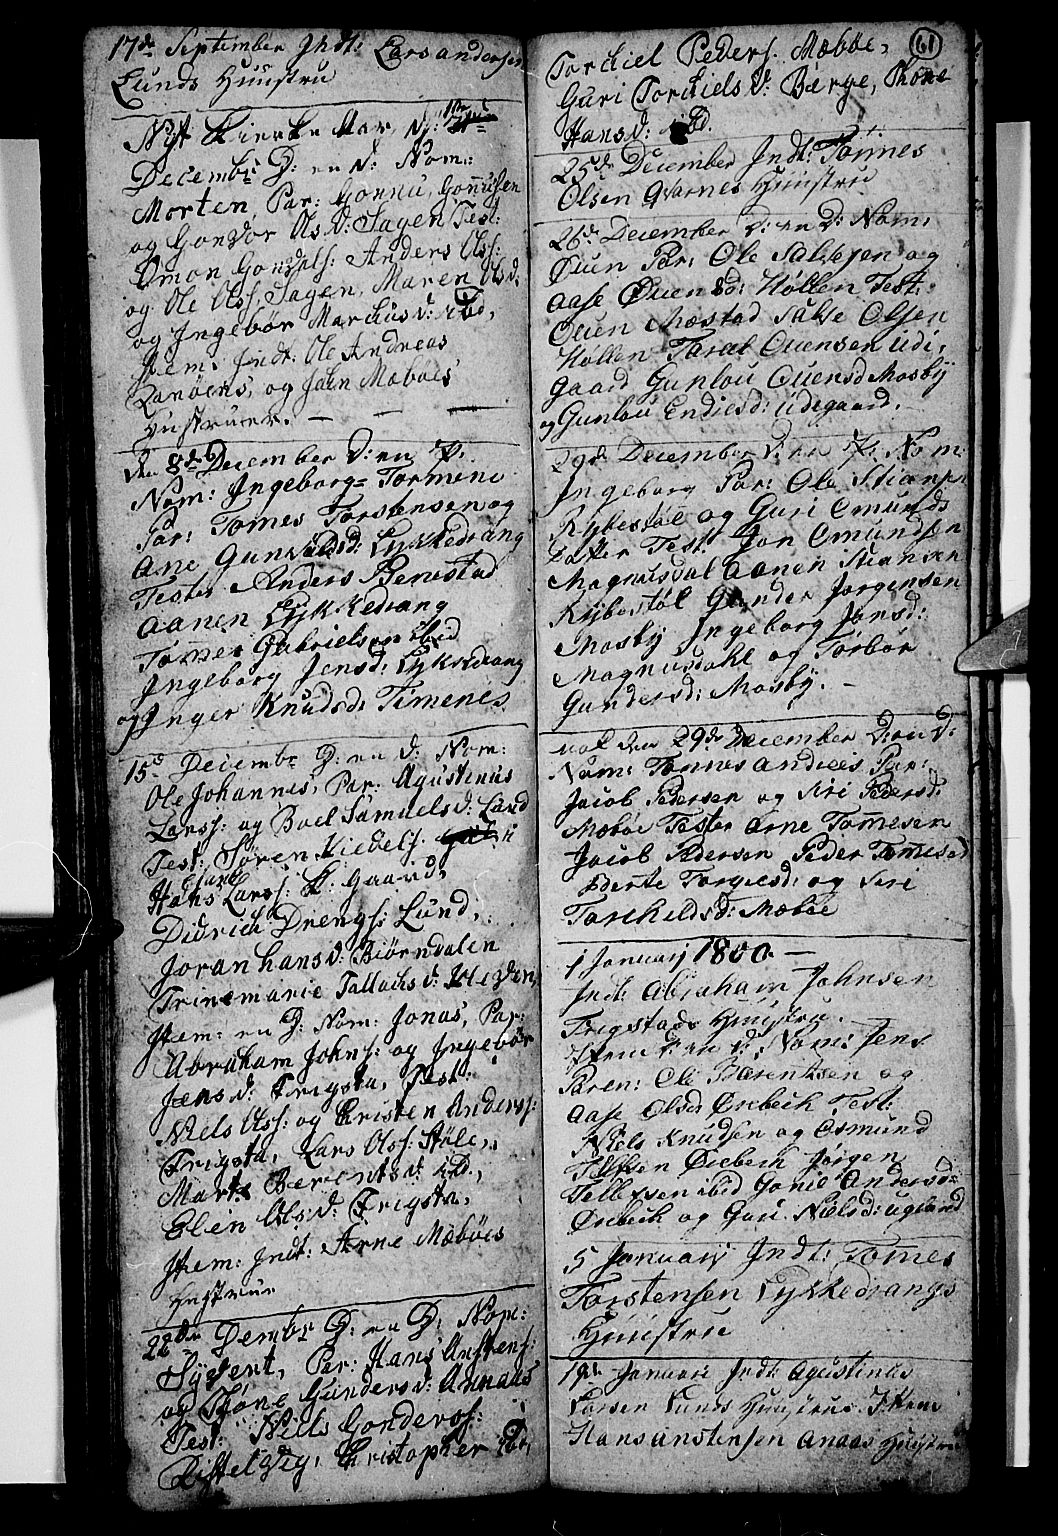 17de September Indt: Lars andersen
Lunds Huustru
Nyt Kircke Aar, d: 1te
Decembr D: en d: Nom:
Morten, Par: Gonnu, Gonnusen
og Gondor Olsd: Sagen, Test:
Omon Gondels: Anders Olss:
og Ole Olss, Sagen, Maren Olsd:
og Ingebor Marcusd: ibd,
Item: Indt: Ole Andreas
og John Mæbøes
Hustruer.
den 8de December d: en P.
Nom: Ingeborg Tormene
Par: Tomes Torstensen og
Ane Gunvaldsd: Lykkedrang
Testes Anders Benestad
Aanen Lykkedrang
Tomes Gabrielsen ibid
Ingeborg Jensd: Lykkedrang
og Inger Knudsd: Timenes
15d Decembr D: en d: Nom:
Ole Johannes, Par: Agustinus
Larss: og Boel Samuelsd: Lund
Test: Søren Kiedels:
Hans Larss: K. Gaard,
Didrich Drengs: Lund,
Joran hansd: Biørndalen
Trinemarie Tallachsd:
Item: en D: Nom: Jonas, Par:
Abraham Johns: og Ingebor
Jensd: Frigsta, Test:
Niels Olss: og Cristen Anderss:
Frigsta, Lars Olss: Støle,
Marte Berentsd: ibd,
Elen Olsd: Frigsta,
Item: Indt: Arne Mæbøes
Hustrue
22de Dembr D: en D: Nom:
Syvert, Par: Hans Anstens:
og Thone Gundersd: Aanaas
Test: Niels Gonderss:
Christopher ibd,
61
Torchiel Peders. Mæbøe,
Guri Torchielsd: Berge, Thone
Hansd: ibd.
25de December Indt: Tønnes
Olsen Qvarnes Huustrue
26de December d: en D: Nom:
Ouen Par: Ole Salvesen og
Aase Ouensd: Hollen Test:
Ouen Mæstad Salve Olsen
Hollen Taral Ouensen Udi,
gaard Gunlou Ouensd Mosby
og Gunlou Endresd: Udegaard.
29de December d: en P: Nom:
Ingeborg Par: Ole Stiansen
Rybestøl og Guri Omunds
Datter Test: Jon Omundsen
Magnusdal Aanen Stiansen
Rybestøl Gunder Jørgensen
Mosby Ingeborg Jonsd:
Magnusdahl og Torbor
Gundersd: Mosby.
den 29de December D: en d:
Nom: Tønnes Andreas Par:
Jacob Pedersen og Siri Pedersd:
Mæbøe Testes Arne Tomesen
Jacob Pedersen Peder Tomesen
Berte Torgiesd: og Siri
Torchildsd: Mæbøe
1 Januarij 1800
Indt: Abraham Johnsen
Frigstads Huustru.
Item d: en d: Nom: Jens
Paren: Ole Bærentsen og
Aase Olsd: Ørebech Test:
Niels Knudsen og Osmund
Ørebech Jørgen
ibid Gonil Andersd:
Ørebech og Guri Nielsd: Ugland
5 Januarij Indt: Tomes
Torstensen Lykkedrangs
Huustrue
19de Januari Indt: Agustinus
Larsen Lunds Huustrue Item
Hans Anstensen Anaas Huustru